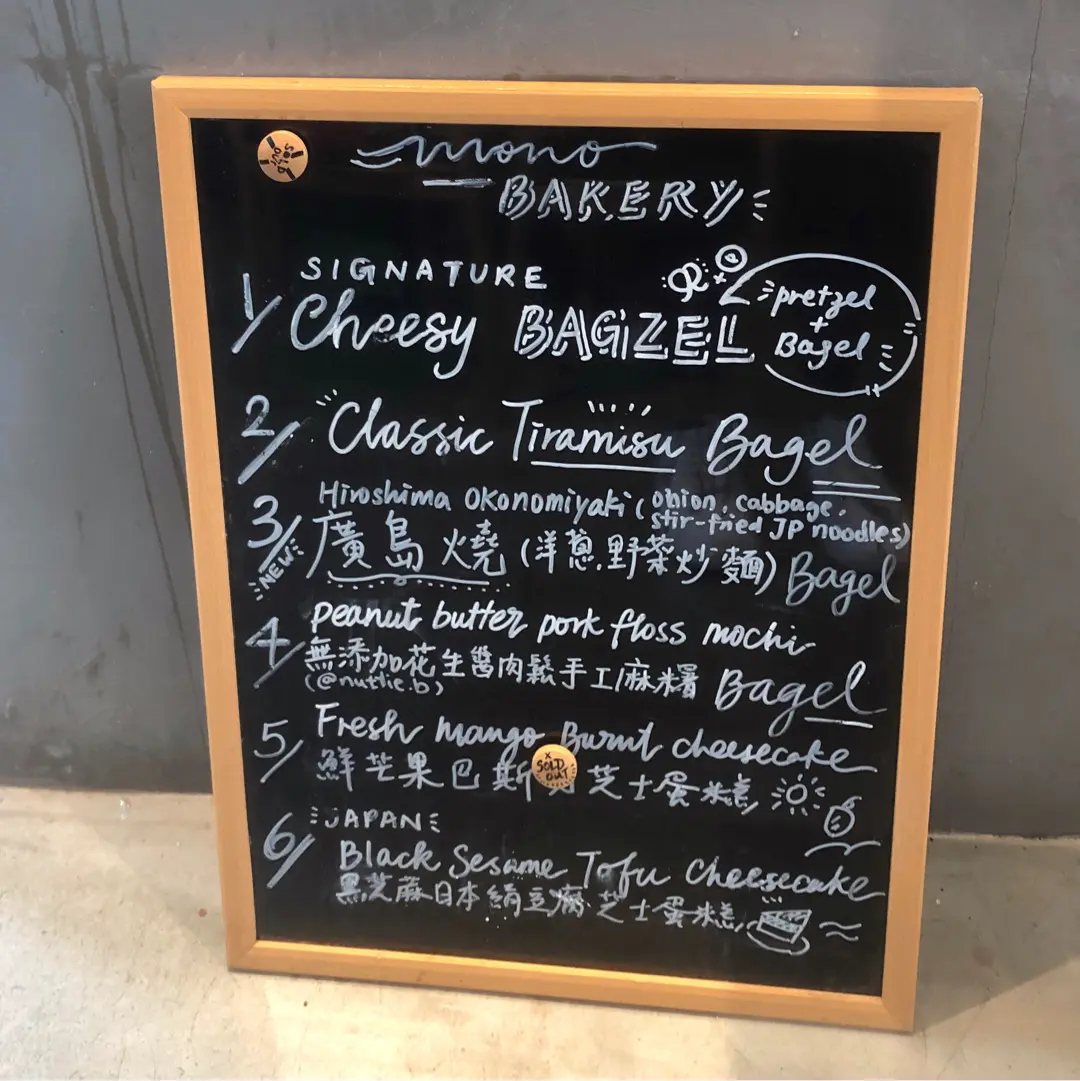 SOLD OUT
mono
BAKERY
SIGNATURE
1/ Cheesy BAGZEL
pretzel
+
Bagel
2/ Classic Tiramisu Bagel
Hiroshima Okonomiyaki (onion, cabbage,
stir-fried JP noodles)
3/ 廣島燒 (洋蔥.野菜炒麵) Bagel
NEW
4/ peanut butter pork floss mochi
無添加花生醬肉鬆手工麻糬 Bagel
(@nuttie.b)
5/ Fresh mango Burnt cheesecake
鮮芒果巴斯 芝士蛋糕
SOLD OUT
JAPAN
6/ Black Sesame Tofu Cheesecake
黑芝蔴日本絹豆腐芝士蛋糕